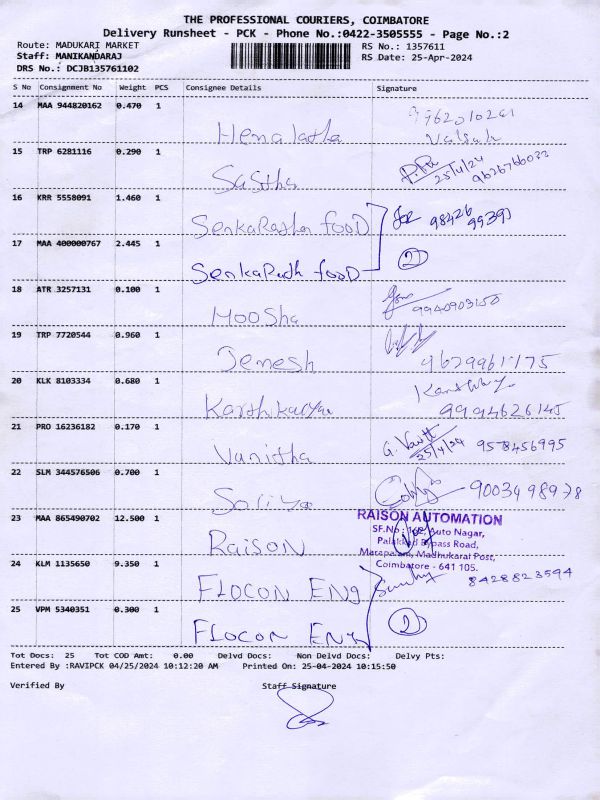 THE PROFESSIONAL COURIERS, COIMBATORE
Delivery Runsheet - PCK - Phone No.:0422-3505555 - Page No.:2
Route: MADUKARI MARKET RS No.: 1357611
Staff: MANIKANDARAJ RS Date: 25-Apr-2024
DRS No.: DCJB135761102
S No Consignment No Weight PCS Consignee Details Signature
14 MAA 944820162 0.470 1
Henalatha
15 TRP 6281116 0.290 1
Sasitha 25/4/24
16 KRR 5558091 1.460 1
food 98426 99391
17 MAA 400000767 2.445 1 2
food
18 ATR 3257131 0.100 1
Moosha 9940903150
19 TRP 7720544 0.960 1
Jenesh
20 KLK 8103334 0.680 1
9994626145
21 PRO 16236182 0.170 1
Vanitha 25/4/24 9578456995
22 SLM 344576506 0.700 1
9003498978
23 MAA 865490702 12.500 1 RAISON AUTOMATION
SF.No: Auto Nagar,
Raison Palakkad Bypass Road,
Madhukarai Post,
24 KLM 1135650 9.350 1 Coimbatore - 641 105.
Flocon Eng 8428823594
25 VPM 5340351 0.300 1 2
Flocon Eng
Tot Docs: 25 Tot COD Amt: 0.00 Delvd Docs: Non Delvd Docs: Delvy Pts:
Entered By :RAVIPCK 04/25/2024 10:12:20 AM Printed On: 25-04-2024 10:15:50
Verified By Staff Signature